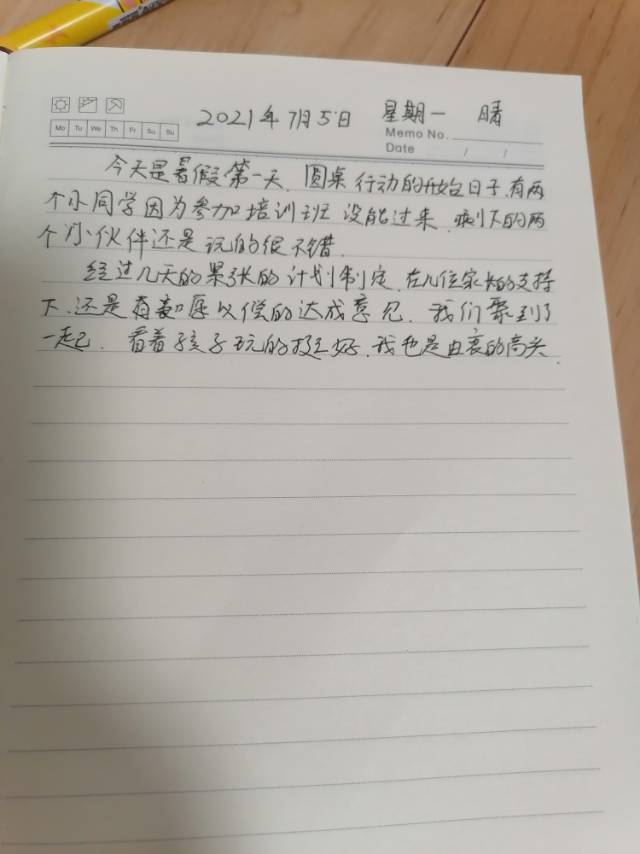 2021年7月5日 星期一 晴
Mo Tu We Th Fr Sa Su
Memo No.
Date / /
今天是暑假第一天、圆桌行动的开始日子、有两
个小同学因为参加培训班没能过来、剩下的两
个小伙伴还是玩的很不错.
经过几天的紧张的计划制定、在几位家长的支持
下、还是有如愿以偿的达成意见、我们聚到了
一起、看着孩子玩的挺好、我也是由衷的高兴.